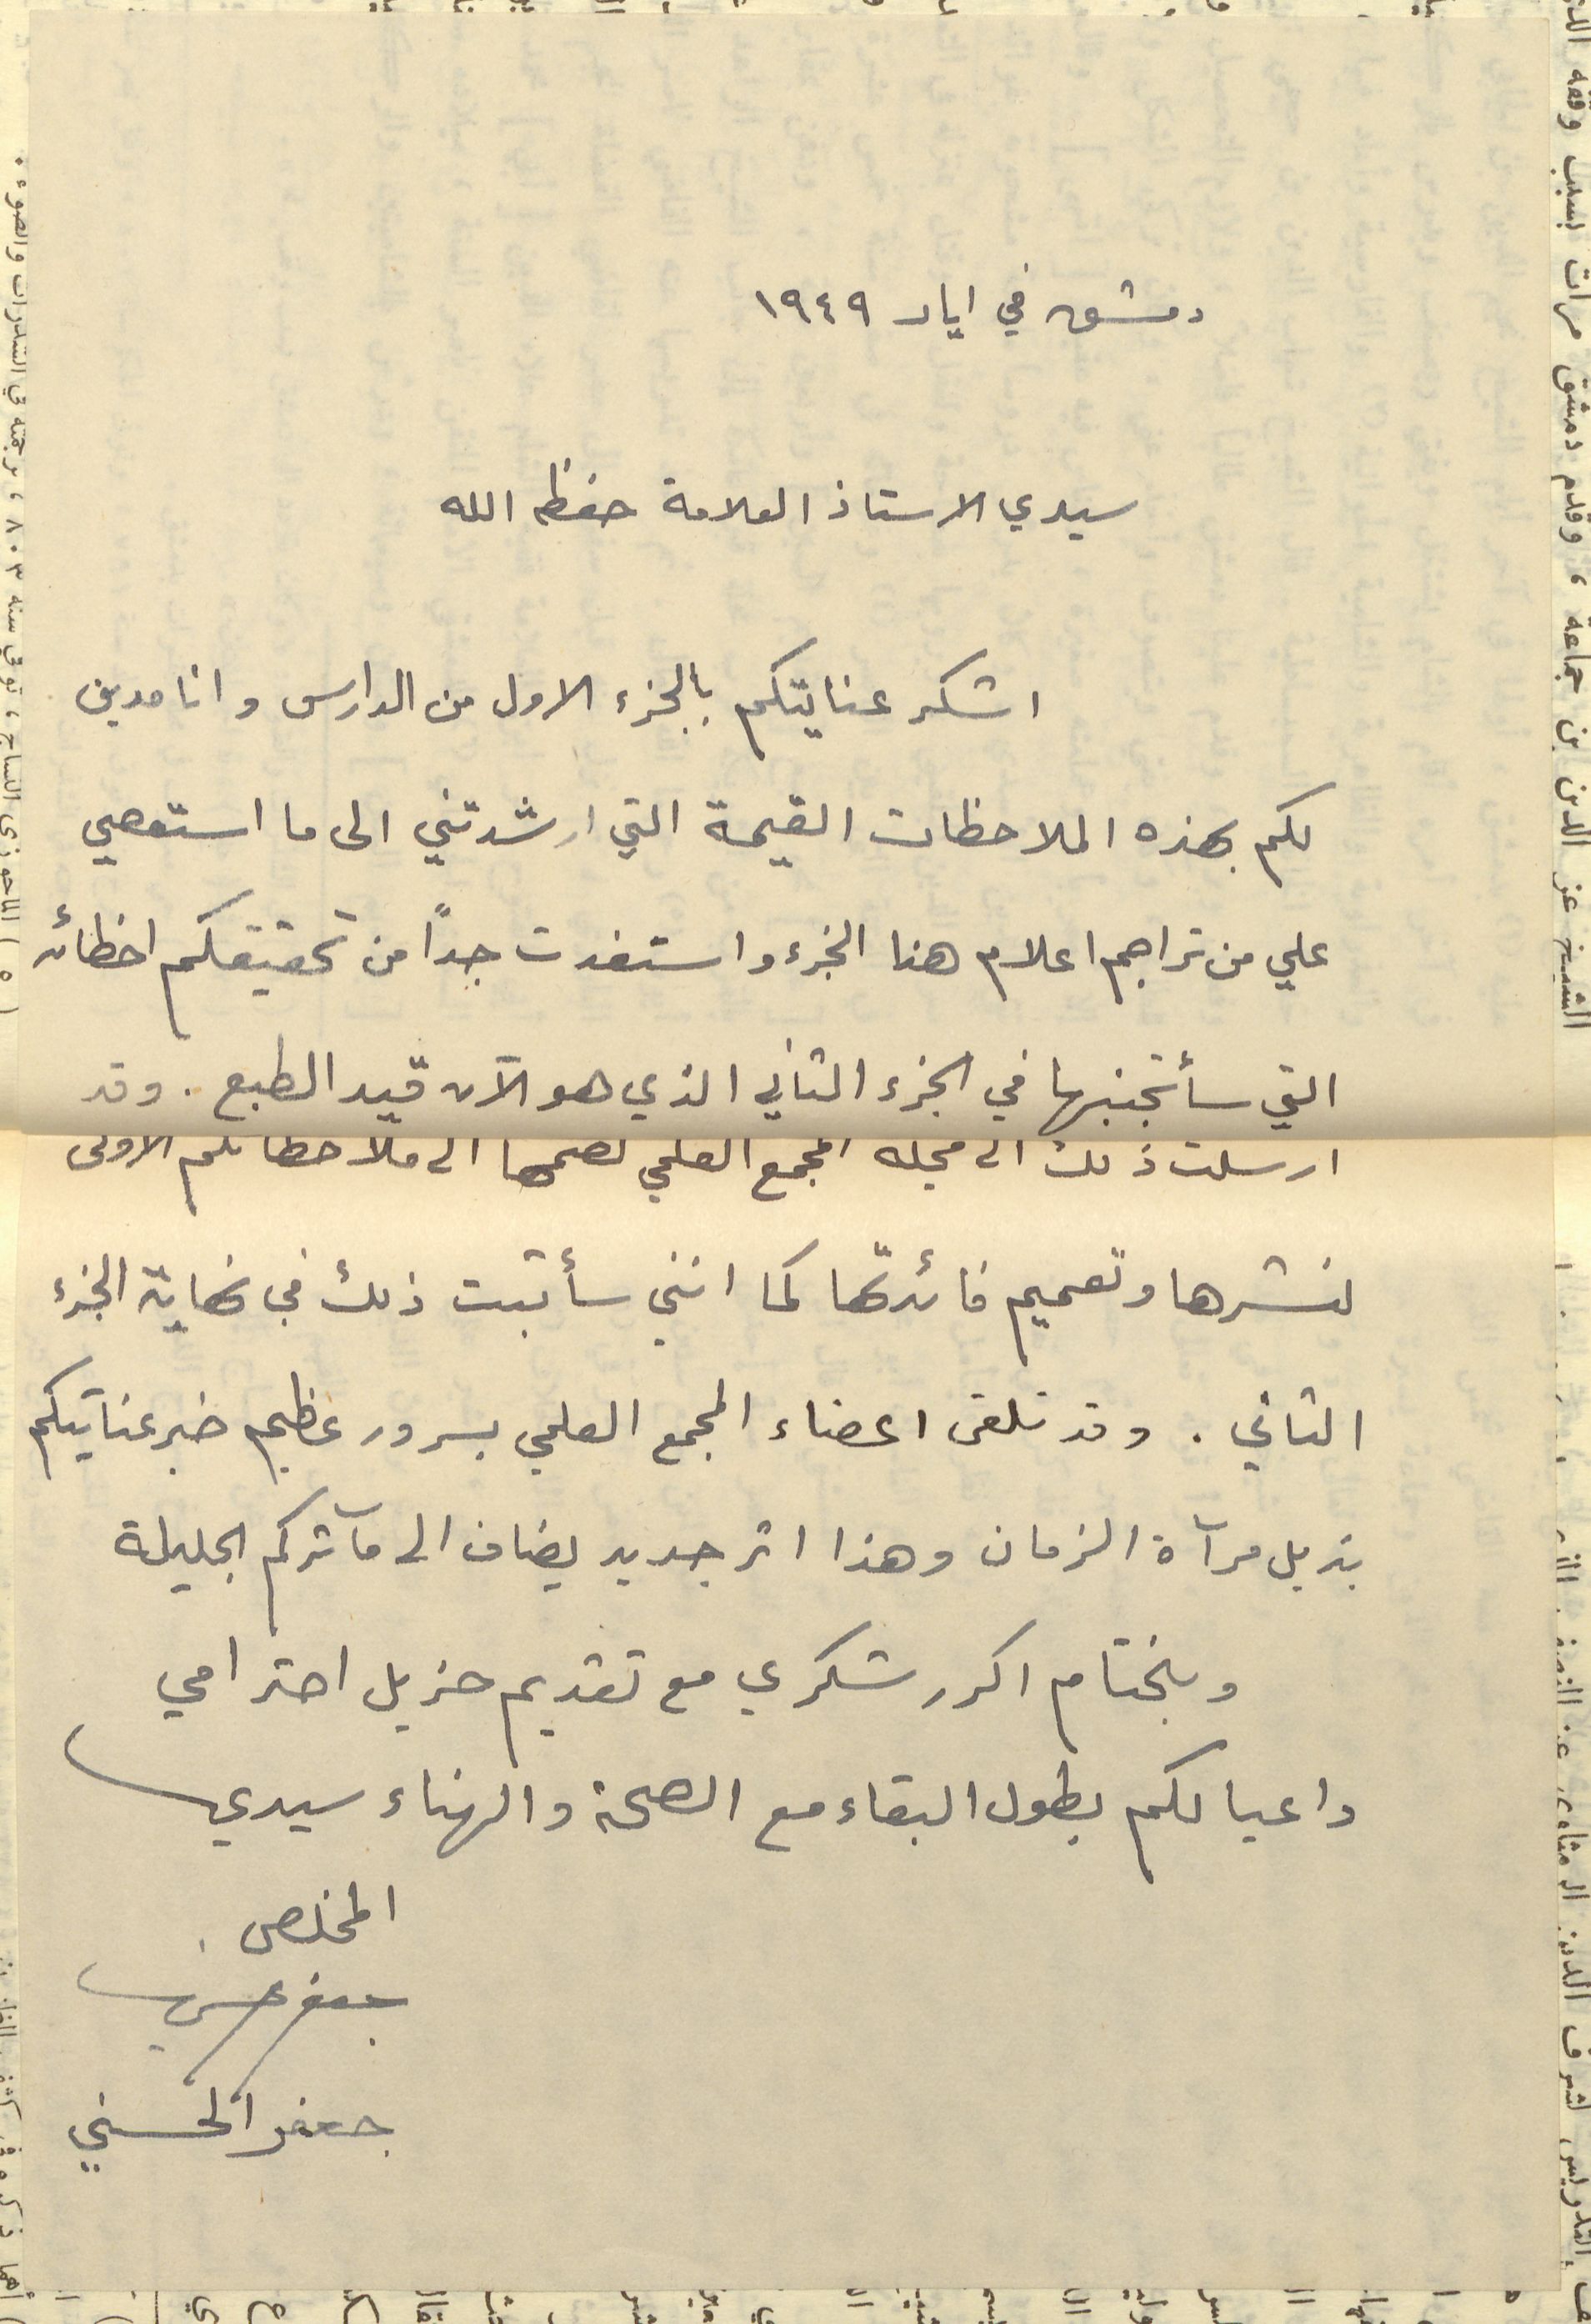 دمشق في ايار ١٩٤٩
سيدي الاستاذ العلامة حفظه الله
اشكر عنايتكم بالجزء الاول من الدارس وانا مدين
لكم بهذه الملاحظات القيمة التي ارشدتني الى ما استعصي
علي من تراجم اعلام هذا الجزء واستفدت جداً من تحقيقكم اخطائه
التي سأتجنبها في الجزء الثاني الذي هو الآن قيد الطبع . وقد
ارسلت ذلك الى مجلة المجمع العلمي لضمها الى ملاحظاتكم الاولى
لنشرها وتعميم فائدتها كما انني سأثبت ذلك في نهاية الجزء
الثاني . وقد تلقى اعضاء المجمع العلمي بسرور عظيم خبر عنايتكم
بذيل مرآة الزمان وهذا اثر جديد يضاف الى مآثركم الجليلة
وبختام اكرر شكري مع تقديم جزيل احترامي
داعيا لكم بطول البقاء مع الصحة والهناء سيدي
المخلص
جعفر الحسني
الشيخ عز الدين بن جماعة ، وقدم دمشق مرات بسبب وقف